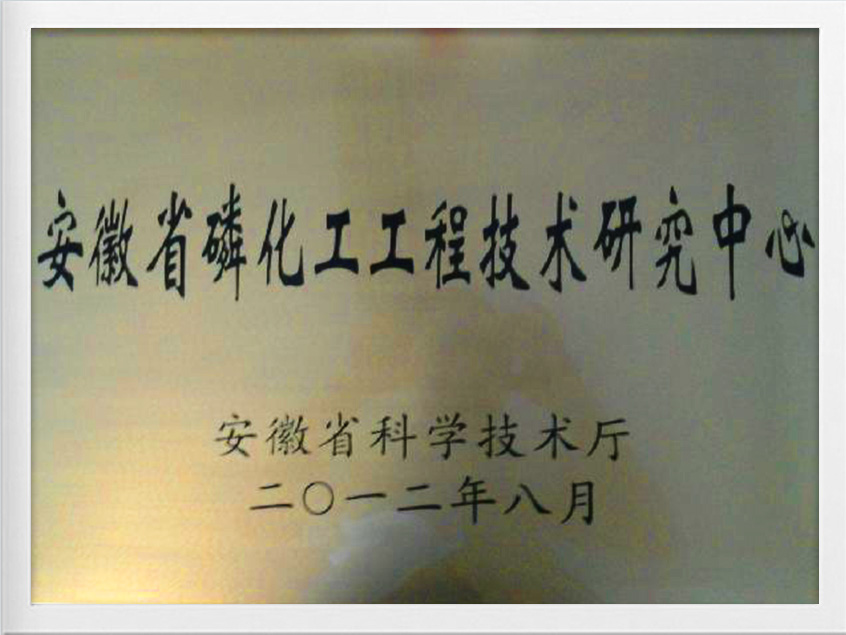 安徽省磷化工工程技术研究中心
安徽省科学技术厅
二〇一二年八月